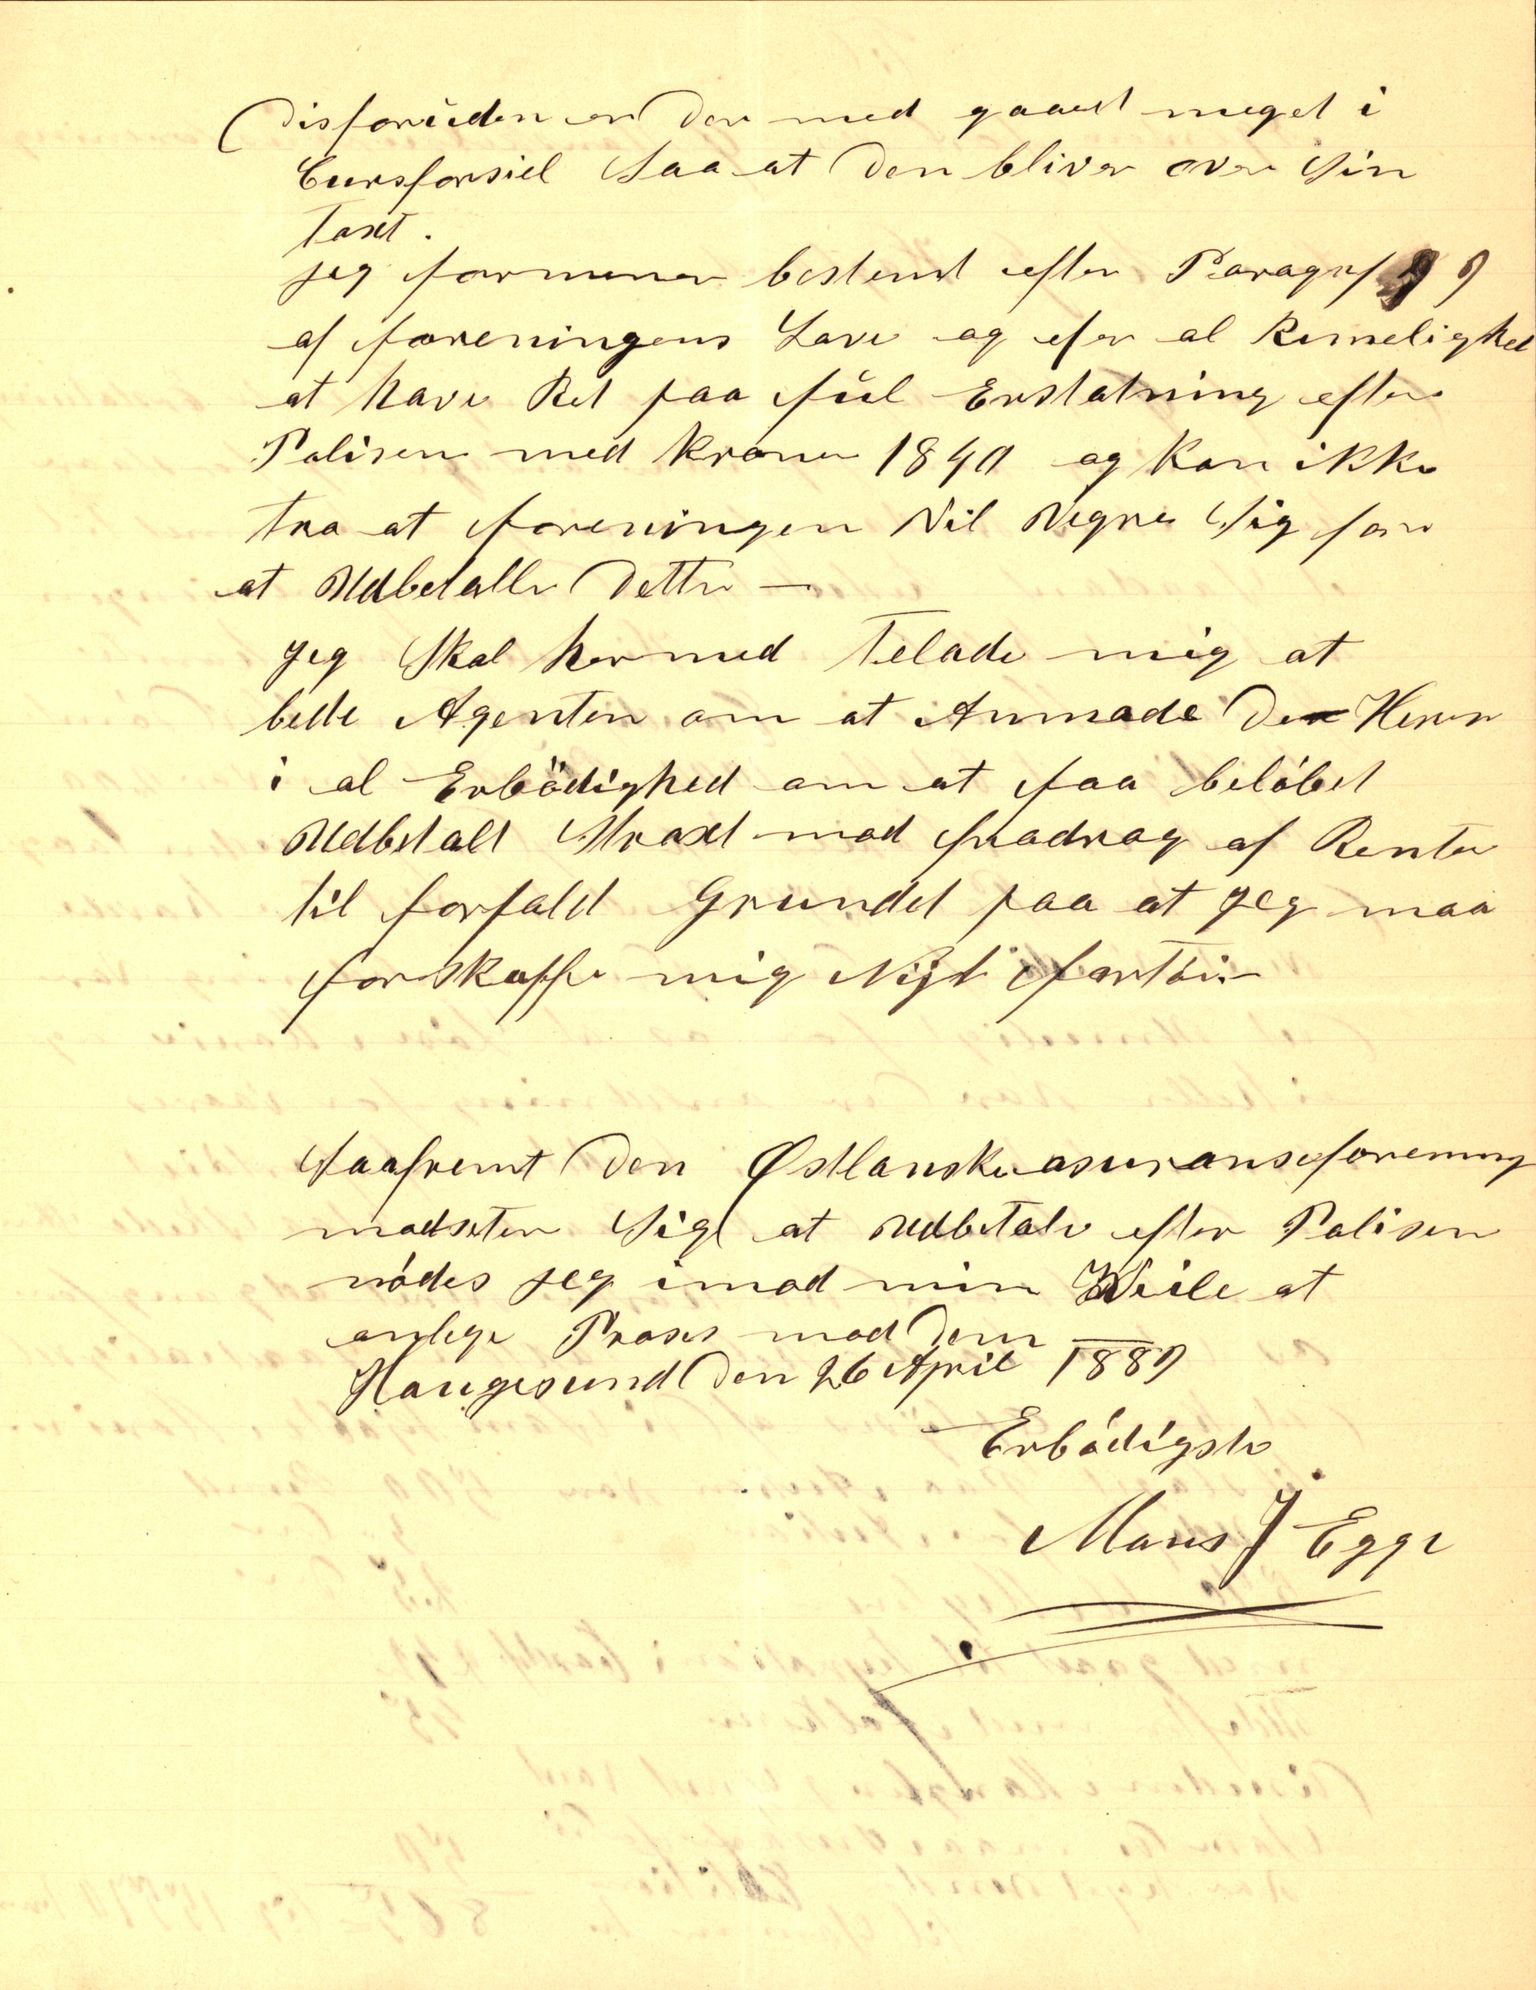 Disforüden er der med gaaed meget i
Cursforsiel saa at den bliver over sin
Taxt.
jeg formener bestemt efter Paragraf 9
af foreningens Love og efer al Rimelighed
at have Ret paa fül Erstatning efter
Polisen med Kroner 1840 og Kan ikke
tro at foreningen Vil Vegre sig for
at Udbetalle Dette —
jeg skal hermed Telade mig at
bede Agenten om at Anmode De Herer
i al Erbödighed om at faa belöbet
Udbetalt Straxt mod fradrag af Renter
til forfald Grundet paa at jeg maa
forskaffe mig Nijt fartöi
saafremt den Østlanskeasuranseforening
modseter sig at Udbetale efter Polisen
nödes jeg imod min Weile at
anlege Proses mod dem
Haugesund den 26 April 1889
Erbödigste
Mons J Egge